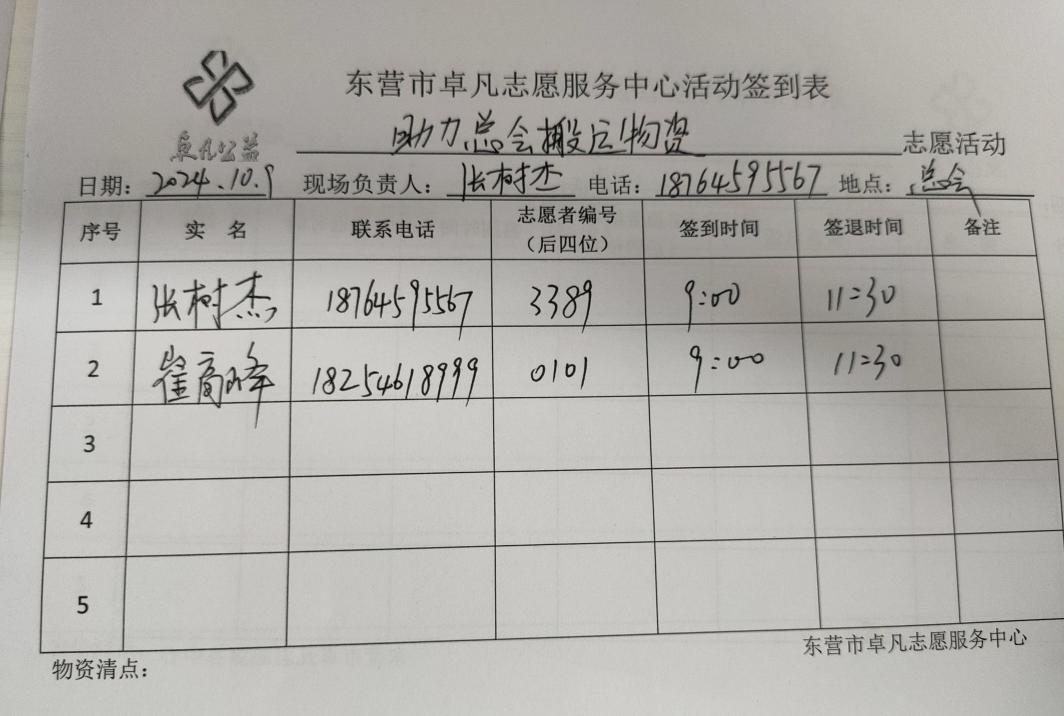 东营市卓凡志愿服务中心活动签到表
卓凡公益
助力总会搬运物资 志愿活动
日期：2024.10.9 现场负责人：张树杰 电话：18764595567 地点：总会
序号 实 名 联系电话 志愿者编号（后四位） 签到时间 签退时间 备注
1 张树杰 18764595567 3389 9:00 11:30
2 崔高峰 18254618999 0101 9:00 11:30
3
4
5
东营市卓凡志愿服务中心
物资清点：